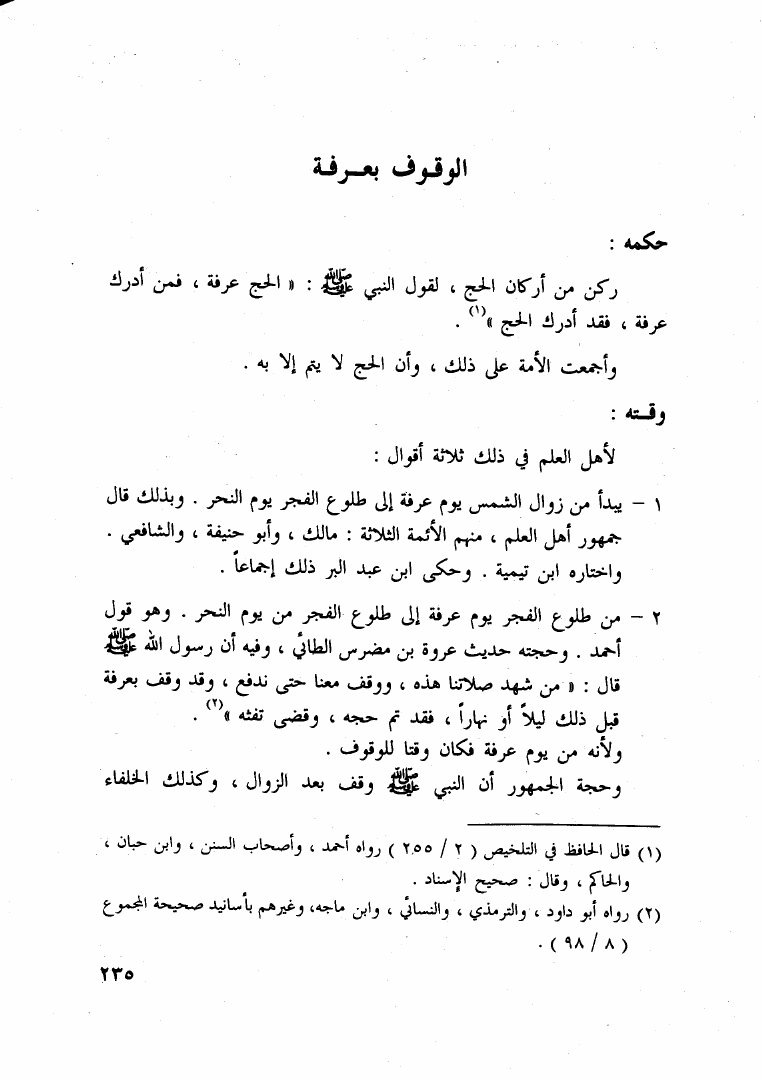 الوقوف بعرفة
حكمه :
ركن من أركان الحج ، لقول النبي ﷺ : « الحج عرفة ، فمن أدرك
عرفة ، فقد أدرك الحج »(١) .
وأجمعت الأمة على ذلك ، وأن الحج لا يتم إلا به .
وقته :
لأهل العلم في ذلك ثلاثة أقوال :
١ – يبدأ من زوال الشمس يوم عرفة إلى طلوع الفجر يوم النحر . وبذلك قال
جمهور أهل العلم ، منهم الأئمة الثلاثة : مالك ، وأبو حنيفة ، والشافعي .
واختاره ابن تيمية . وحكى ابن عبد البر ذلك إجماعاً .
٢ – من طلوع الفجر يوم عرفة إلى طلوع الفجر من يوم النحر . وهو قول
أحمد . وحجته حديث عروة بن مضرس الطائي ، وفيه أن رسول الله ﷺ
قال : « من شهد صلاتنا هذه ، ووقف معنا حتى ندفع ، وقد وقف بعرفة
قبل ذلك ليلاً أو نهاراً ، فقد تم حجه ، وقضى تفثه »(٢) .
ولأنه من يوم عرفة فكان وقتا للوقوف .
وحجة الجمهور أن النبي ﷺ وقف بعد الزوال ، وكذلك الخلفاء
(١) قال الحافظ في التلخيص ( ٢ / ٢٥٥ ) رواه أحمد ، وأصحاب السنن ، وابن حبان ،
والحاكم ، وقال : صحيح الإسناد .
(٢) رواه أبو داود ، والترمذي ، والنسائي ، وابن ماجه، وغيرهم بأسانيد صحيحة المجموع
( ٨ / ٩٨ ) .
٢٣٥